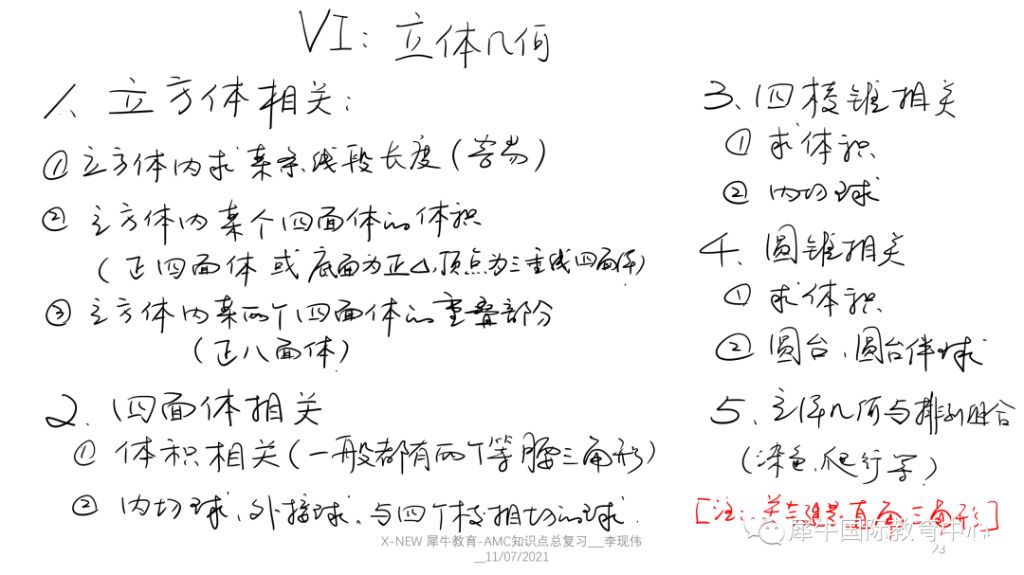 VI: 立体几何
1、立方体相关:
① 立方体内求某条线段长度(容易)
② 立方体内某个四面体的体积
(正四面体 或 底面为正△,顶点为三垂线四面体)
③ 立方体内某两个四面体的重叠部分
(正八面体)
2、四面体相关
① 体积相关(一般都有两个等腰三角形)
② 内切球、外接球、与四个棱相切的球.
3、四棱锥相关
① 求体积
② 内切球
4、圆锥相关
① 求体积
② 圆台、圆台伴球
5、立体几何与排列组合
(染色,爬行等)
[注: 直角三角形]
犀牛国际教育中心
X-NEW 犀牛教育-AMC知识点总复习__李现伟
__11/07/2021
23